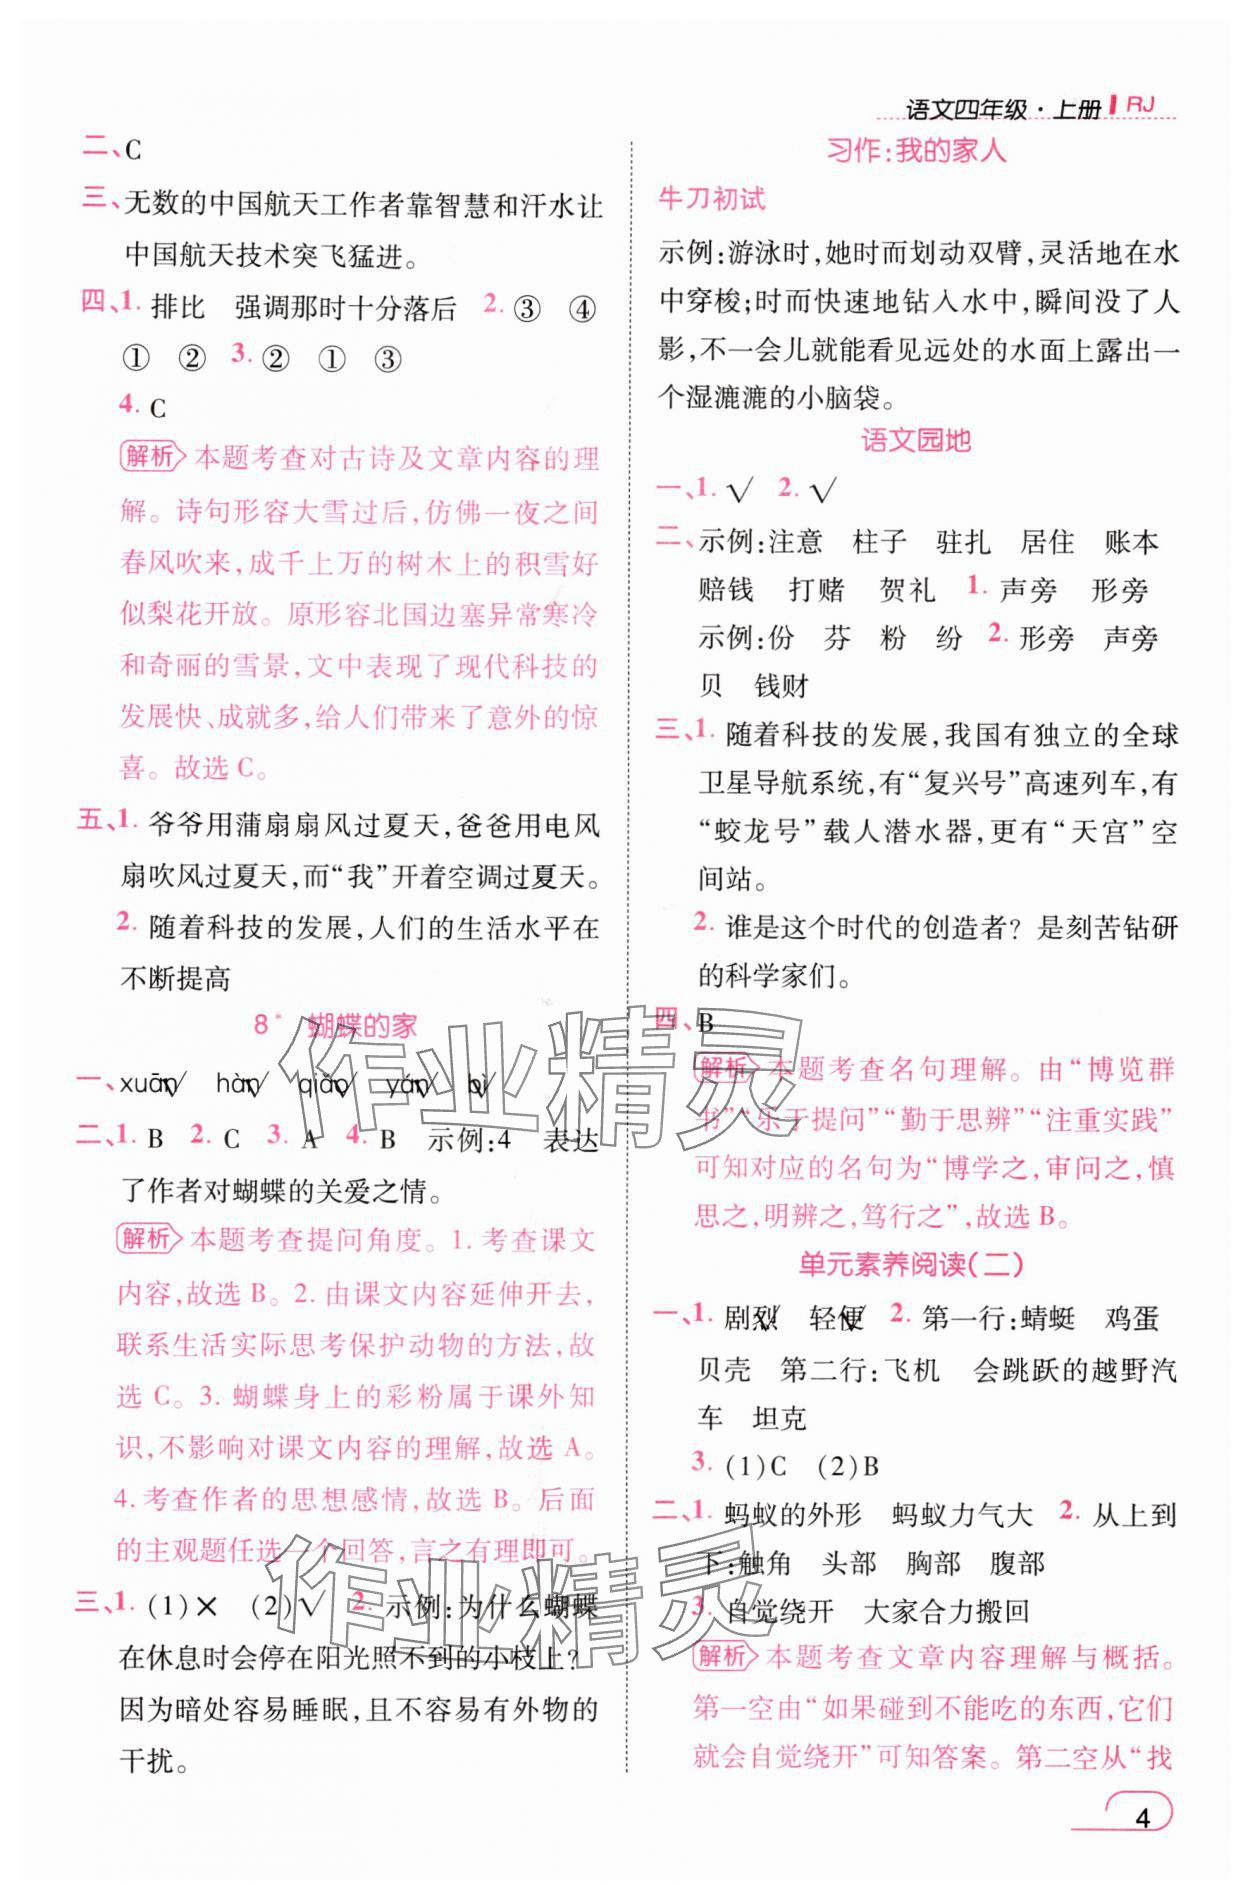 语文四年级·上册 RJ
二、C
三、无数的中国航天工作者靠智慧和汗水让
中国航天技术突飞猛进。
四、1. 排比 强调那时十分落后 2. ③ ④
① ② 3. ② ① ③
4. C
解析 本题考查对古诗及文章内容的理
解。诗句形容大雪过后,仿佛一夜之间
春风吹来,成千上万的树木上的积雪好
似梨花开放。原形容北国边塞异常寒冷
和奇丽的雪景,文中表现了现代科技的
发展快、成就多,给人们带来了意外的惊
喜。故选 C。
五、1. 爷爷用蒲扇扇风过夏天,爸爸用电风
扇吹风过夏天,而“我”开着空调过夏天。
2. 随着科技的发展,人们的生活水平在
不断提高
8* 蝴蝶的家
一、xuān√ hàn√ qiǎo√ yán√ bì√
二、1. B 2. C 3. A 4. B 示例:4 表达
了作者对蝴蝶的关爱之情。
解析 本题考查提问角度。1. 考查课文
内容,故选 B。2. 由课文内容延伸开去,
联系生活实际思考保护动物的方法,故
选 C。3. 蝴蝶身上的彩粉属于课外知
识,不影响对课文内容的理解,故选 A。
4. 考查作者的思想感情,故选 B。后面
的主观题任选一个回答,言之有理即可。
三、1. (1)× (2)√ 2. 示例:为什么蝴蝶
在休息时会停在阳光照不到的小枝上?
因为暗处容易睡眠,且不容易有外物的
干扰。
习作:我的家人
牛刀初试
示例:游泳时,她时而划动双臂,灵活地在水
中穿梭;时而快速地钻入水中,瞬间没了人
影,不一会儿就能看见远处的水面上露出一
个湿漉漉的小脑袋。
语文园地
一、1. √ 2. √
二、示例:注意 柱子 驻扎 居住 账本
赔钱 打赌 贺礼 1. 声旁 形旁
示例:份 芬 粉 纷 2. 形旁 声旁
贝 钱财
三、1. 随着科技的发展,我国有独立的全球
卫星导航系统,有“复兴号”高速列车,有
“蛟龙号”载人潜水器,更有“天宫”空
间站。
2. 谁是这个时代的创造者? 是刻苦钻研
的科学家们。
四、B
解析 本题考查名句理解。由“博览群
书”“乐于提问”“勤于思辨”“注重实践”
可知对应的名句为“博学之,审问之,慎
思之,明辨之,笃行之”,故选 B。
单元素养阅读(二)
一、1. 剧烈√ 轻便√ 2. 第一行:蜻蜓 鸡蛋
贝壳 第二行:飞机 会跳跃的越野汽
车 坦克
3. (1)C (2)B
二、1. 蚂蚁的外形 蚂蚁力气大 2. 从上到
下:触角 头部 胸部 腹部
3. 自觉绕开 大家合力搬回
解析 本题考查文章内容理解与概括。
第一空由“如果碰到不能吃的东西,它们
就会自觉绕开”可知答案。第二空从“找
4
作业精灵
作业精灵